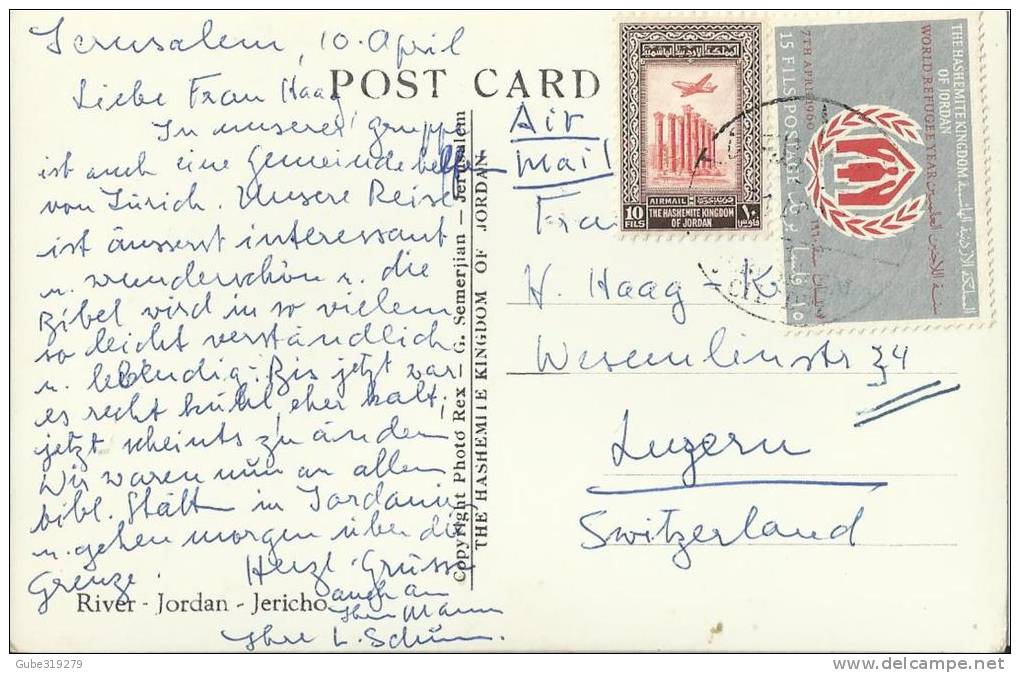 Jerusalem, 10. April
POST CARD
Liebe Frau Haag
In unserer Gruppe
ist auch eine Gemeindehelferin
von Zürich. Unsere Reise
ist äusserst interessant
u. wunderschön u. die
Bibel wird in so vielem
so leicht verständlich
u. lebendig. Bis jetzt war
es recht kühl, eher kalt;
jetzt scheints z'ändern
Wir waren nun an allen
bibl. Stätt in Jordanien
u. gehen morgen über die
Grenze. Herzl. Grüsse
auch an
Ihren Mann
Ihre L.
River - Jordan - Jericho
Copyright Photo Rex - G. Semerjian - Jerusalem
THE HASHEMITE KINGDOM OF JORDAN
Air
Mail
Frau
H. Haag - K
Wesemlinstr 34
Luzern
Switzerland
AIRMAIL
10 FILS
THE HASHEMITE KINGDOM
OF JORDAN
١٠
THE HASHEMITE KINGDOM
OF JORDAN
المملكة الاردنية الهاشمية
WORLD REFUGEE YEAR
سنة اللاجئين العالمية
7TH APRIL 1960
15 FILS POSTAGE
Gube319279
delcampe.net